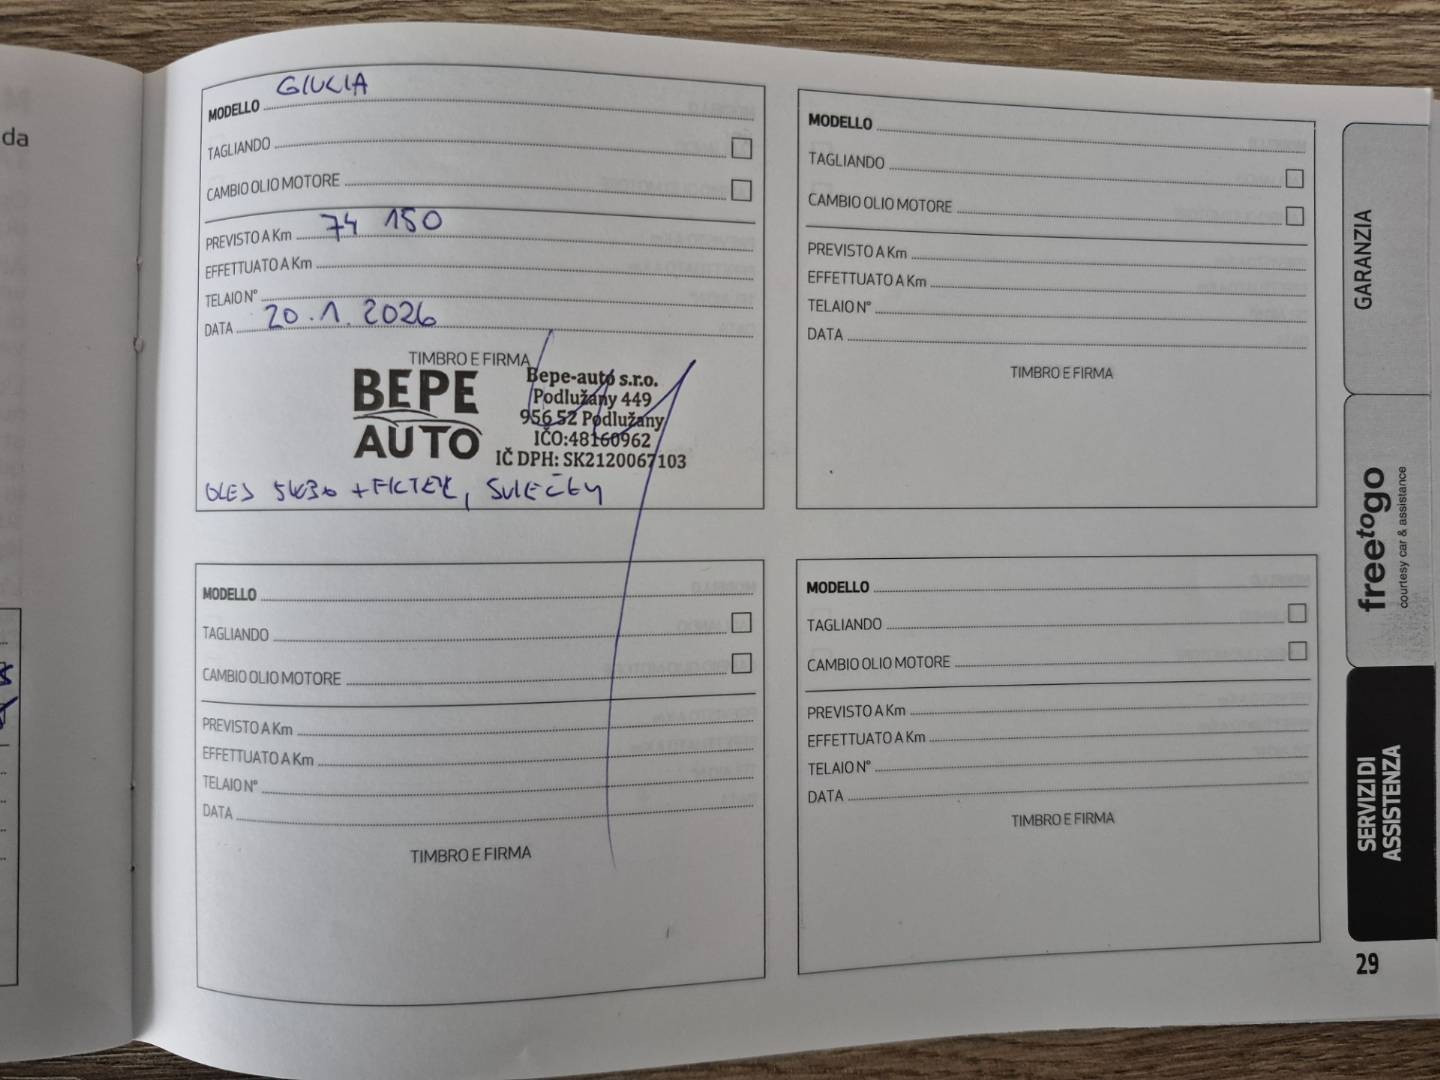 da
GIULIA
MODELLO
TAGLIANDO
CAMBIO OLIO MOTORE
PREVISTO A Km 74 150
EFFETTUATO A Km
TELAIO N°
DATA 20.1.2026
TIMBRO E FIRMA
BEPE
AUTO
Bepe-auto s.r.o.
Podlužany 449
956 52 Podlužany
IČO:48160962
IČ DPH: SK2120067103
OLEJ 5W30 + FILTER, SVIEČKY
MODELLO
TAGLIANDO
CAMBIO OLIO MOTORE
PREVISTO A Km
EFFETTUATO A Km
TELAIO N°
DATA
TIMBRO E FIRMA
MODELLO
TAGLIANDO
CAMBIO OLIO MOTORE
PREVISTO A Km
EFFETTUATO A Km
TELAIO N°
DATA
TIMBRO E FIRMA
MODELLO
TAGLIANDO
CAMBIO OLIO MOTORE
PREVISTO A Km
EFFETTUATO A Km
TELAIO N°
DATA
TIMBRO E FIRMA
GARANZIA
freetogo
courtesy car & assistance
SERVIZI DI
ASSISTENZA
29